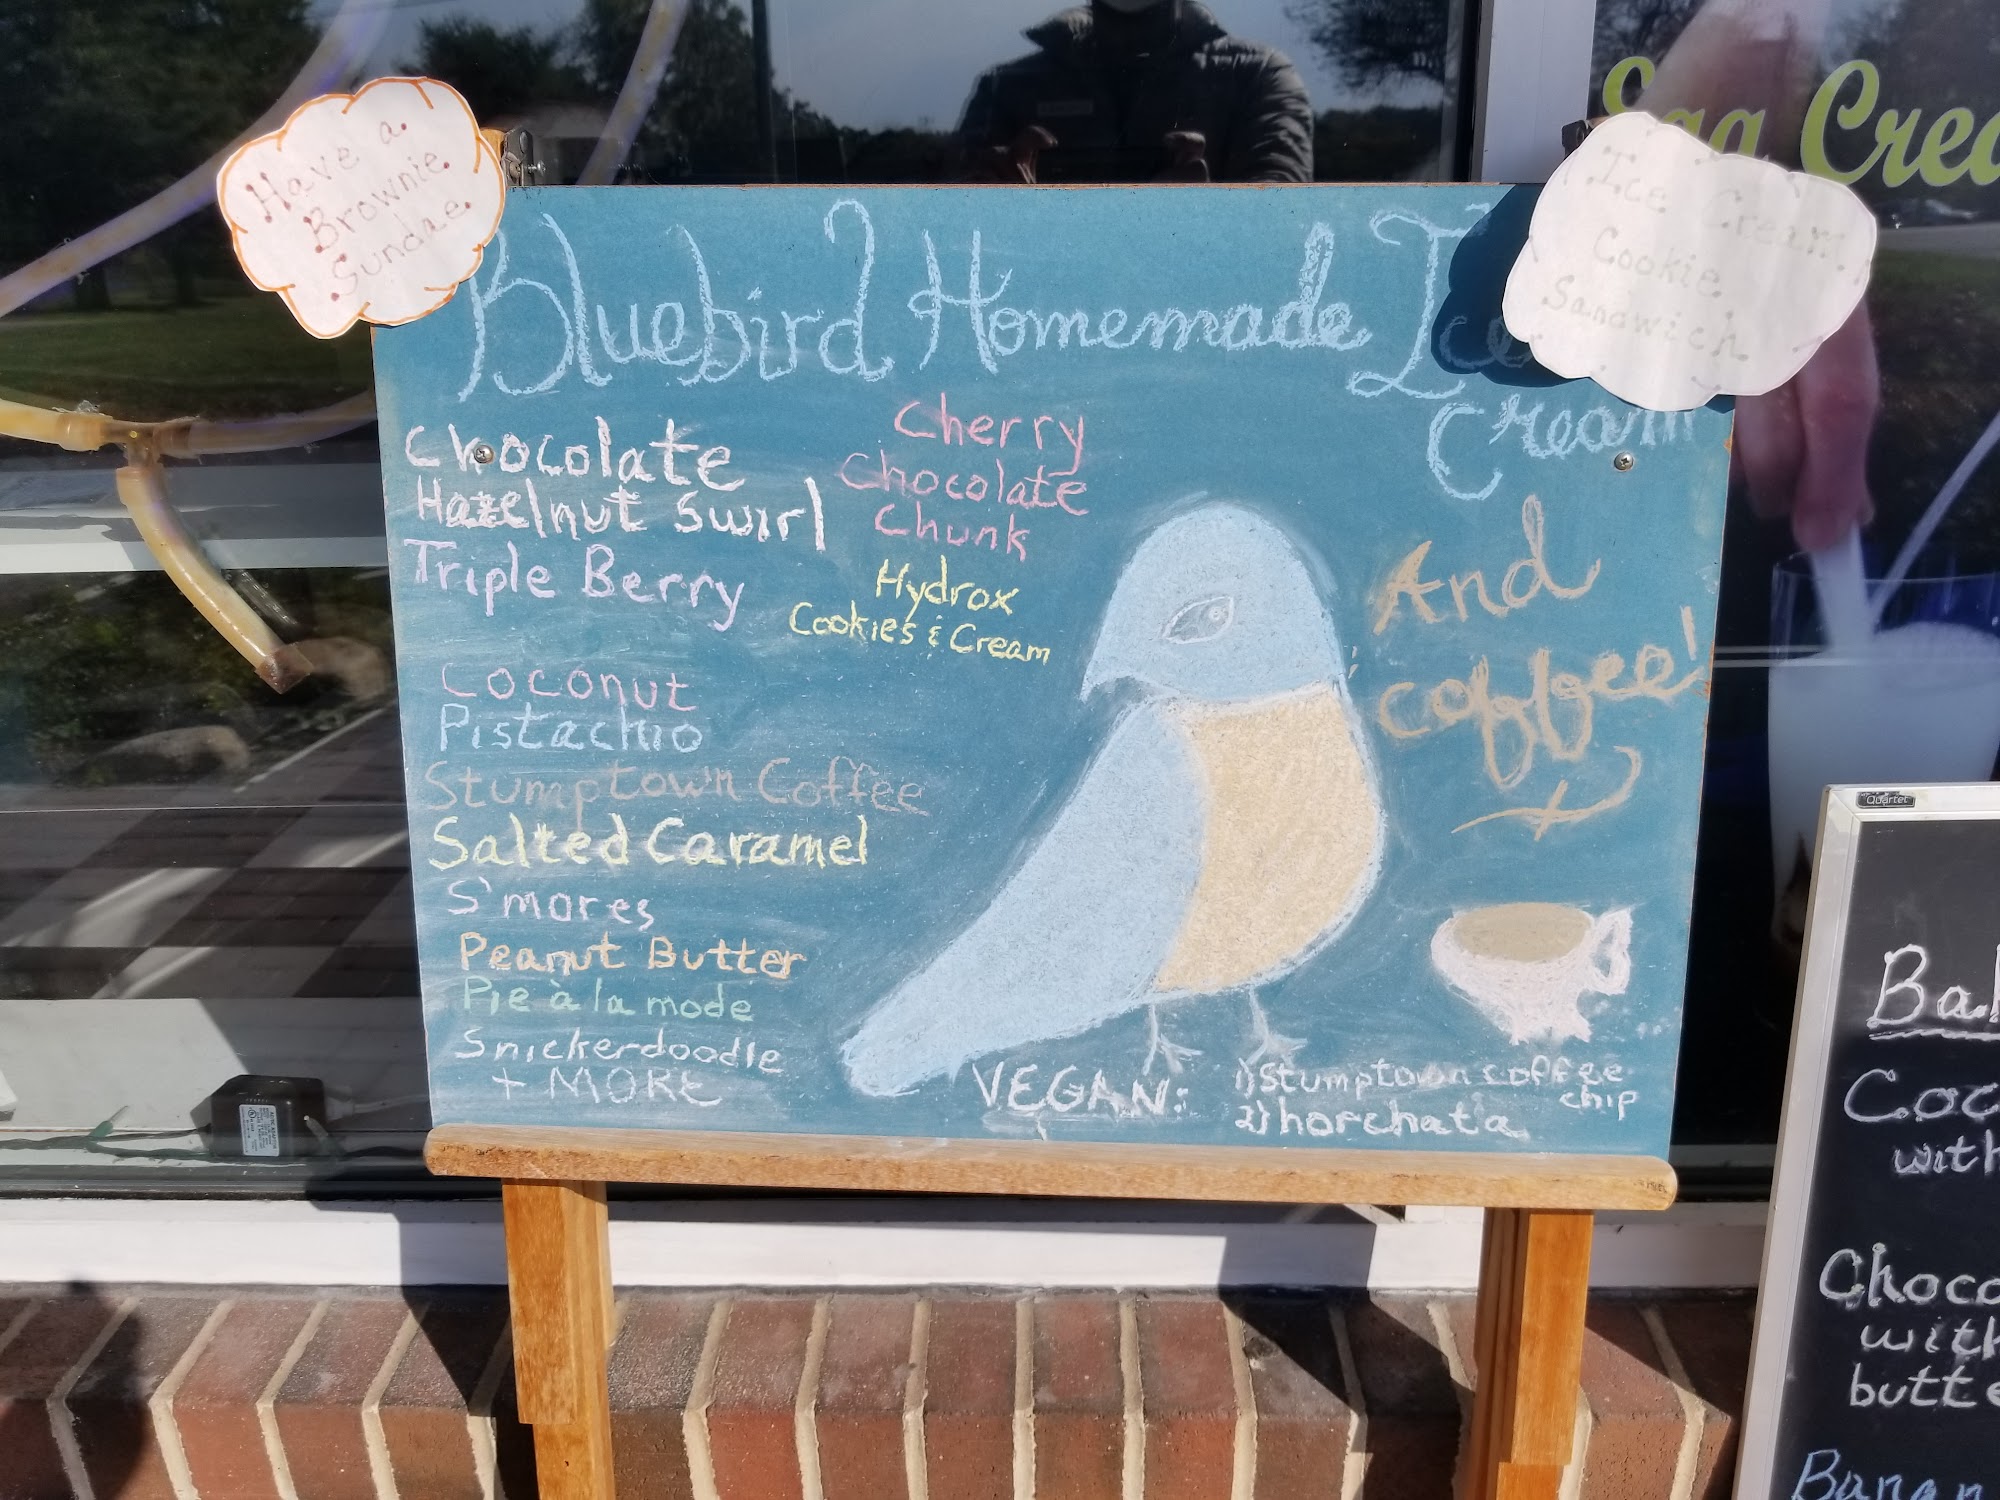 Have a
Brownie
Sundae
Ice Cream
Cookie
Sandwich
Egg Crea
Bluebird Homemade Ice
Cream
And
coffee!
Chocolate
Hazelnut Swirl
Triple Berry
Cherry
Chocolate
Chunk
Hydrox
Cookies & Cream
Coconut
Pistachio
Stumptown Coffee
Salted Caramel
S'mores
Peanut Butter
Pie à la mode
Snickerdoodle
+ MORE
VEGAN:
1) Stumptown coffee
chip
2) horchata
Quartet
Bak
Coc
with
Choco
with
butte
Banan